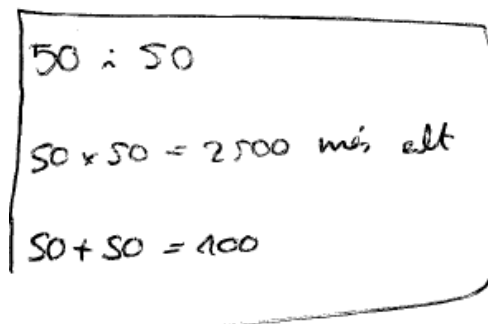 50 i 50
50 × 50 = 2500 més alt
50 + 50 = 100